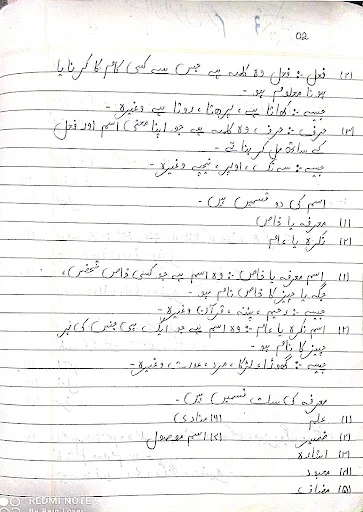 02
(۲) فعل :- فعل وہ کلمہ ہے جس سے کسی کام کا کرنا یا
ہونا معلوم ہو۔
جیسے :- کھاتا ہے، پڑھتا، روتا ہے وغیرہ۔
(۳) حرف :- حرف، وہ کلمہ ہے جو اپنا معنی اسم اور فعل
کے ساتھ مل کر بتائے۔
جیسے :- سے، تک، اوپر، نیچے وغیرہ۔
اسم کی دو قسمیں ہیں۔
(۱) معرفہ یا خاص
(۲) نکرہ یا عام
(۱) اسم معرفہ یا خاص :- وہ اسم ہے جو کسی خاص شخص،
جگہ یا چیز کا خاص نام ہو۔
جیسے :- رحیم، پٹنہ، قرآن وغیرہ۔
(۲) اسم نکرہ یا عام :- وہ اسم ہے جو ایک ہی جنس کی ہر
چیز کا نام ہو۔
جیسے :- گھوڑا، لڑکا، مرد، عورت، وغیرہ۔
معرفہ کی سات قسمیں ہیں۔
(۱) علم (۶) منادی
(۲) ضمیر (۷) اسم موصول
(۳) اشارہ
(۴) معہود
(۵) مضاف
REDMI NOTE
By Raja Lover